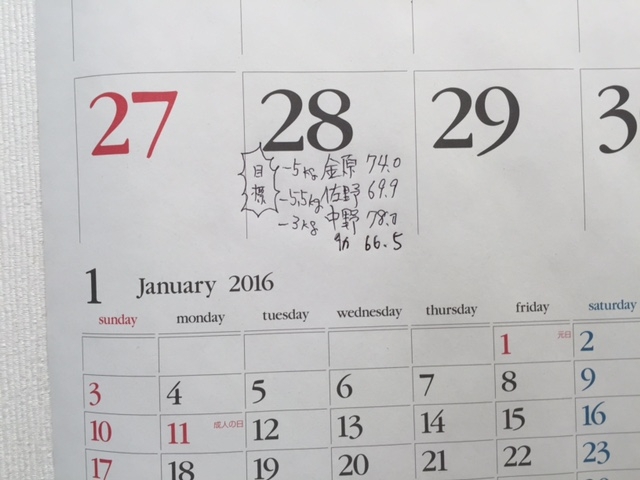 27 28 29 3
目標
-5kg 金原 74.0
-5.5kg 佐野 69.9
-3kg 中野 78.0
66.5
1 January 2016
sunday monday tuesday wednesday thursday friday saturday
1 元日 2
3 4 5 6 7 8 9
10 11 成人の日 12 13 14 15 16
17 18 19 20 21 22 23